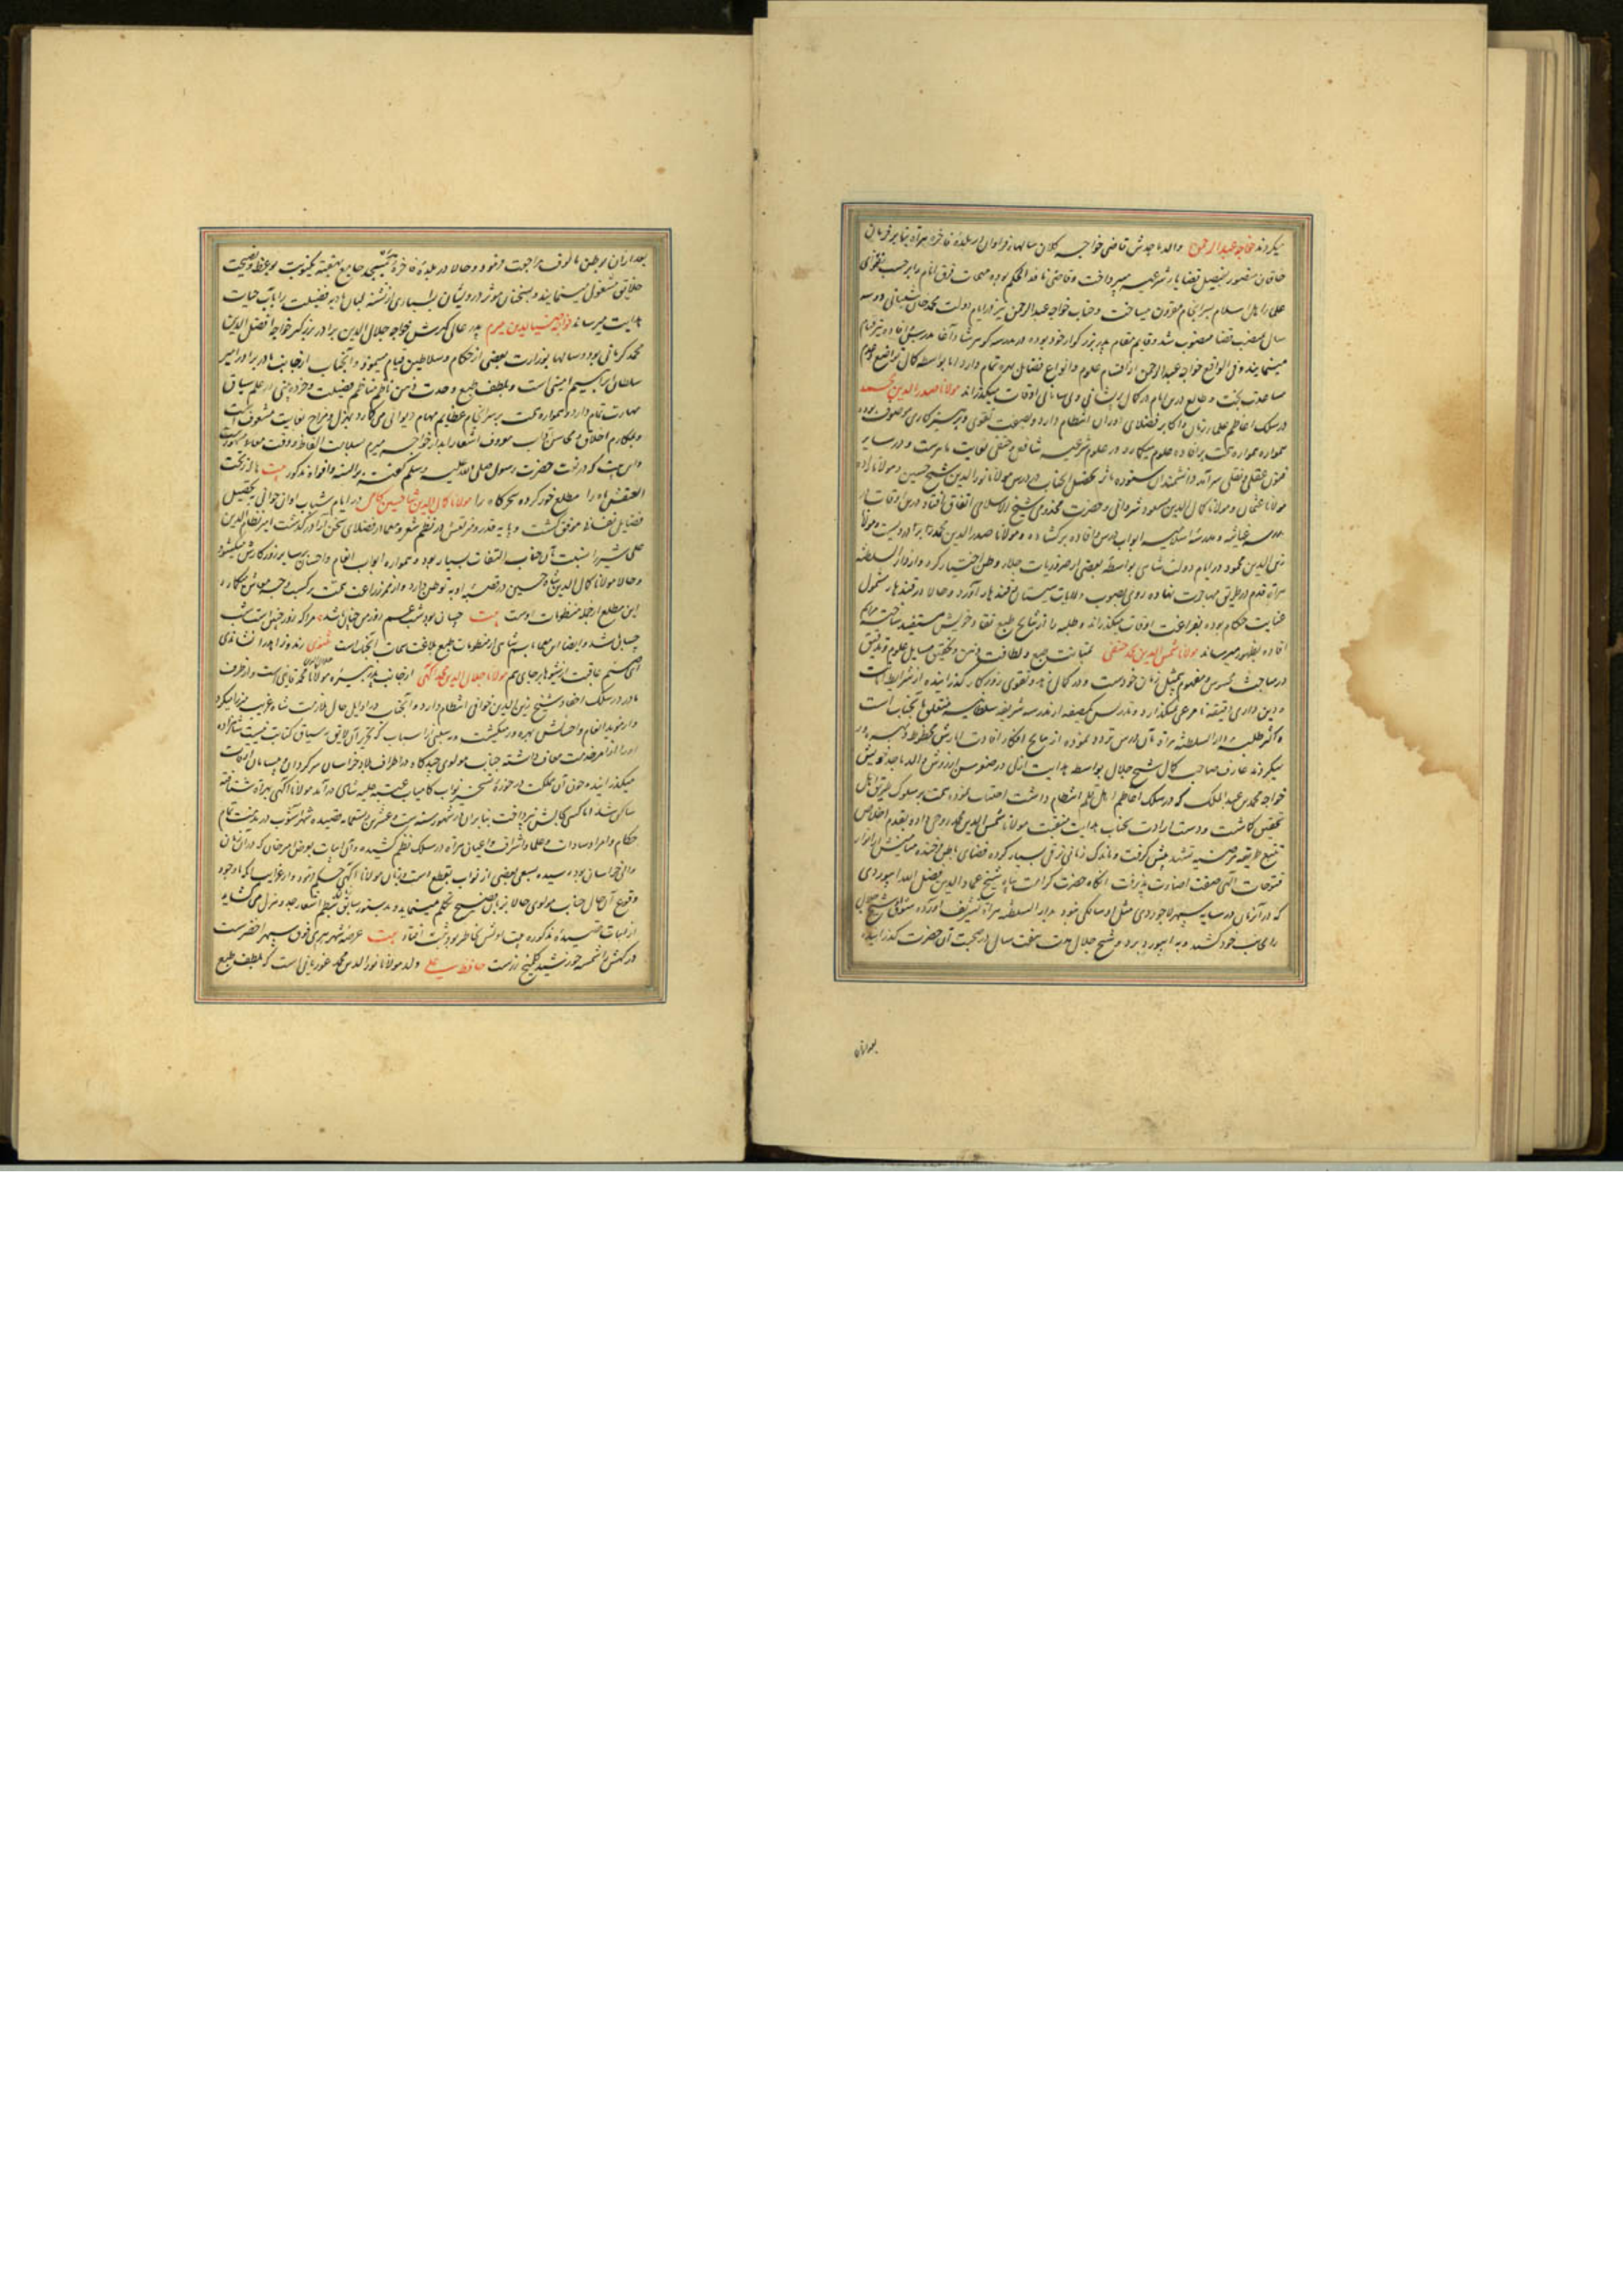 میکردند خواجه عبدالرحمن والد ماجدش قاضی خواجه کلان سالهاء فراوان در بلدهٔ فاخره هراة بنابر فرمان
خاقان منصور بفیصل قضایاء شرعیه میپرداخت و قاضی نافذ الحکم بوده مهمات فرق انام را بر حسب فتوای
علماء اسلام سرانجام مقرون میساخت و جناب خواجه عبدالرحمن نیز در ایام دولت محمد خان شیبانی دو سه
سال بمنصب قضا منصوب شد و قایم مقام پدر بزرگوار خود بوده در مدرسه گوهرشاد آغا بدرس و افاده نیز قیام
مینماید و فی الواقع خواجه عبدالرحمن از اقسام علوم و انواع فضایل بهره تمام دارد اما بواسطه کمال تواضع و عدم
مساعدت بخت و طالع درین ایام در کمال پریشانی و بی سامانی اوقات میگذراند مولانا صدر الدین محمد
در سلک اعاظم علماء زمان و اکابر فضلای دوران انتظام دارد و بصفت تقوی و پرهیزکاری موصوف بوده
همواره همت بر افاده علوم میگمارد و در علوم شرعیه شافعی و حنفی بغایت ماهرست و در سایر
فنون عقلی و نقلی سرآمد دانشمندان ستوده مآثر تحصیل آنجناب در درس مولانا نورالدین شیخ حسین و مولانا زاده
مولانا عثمان و مولانا کمال الدین مسعود شروانی و حضرت مخدومی شیخ الاسلامی اتفاق افتاد و درین اوقات در
مدرسه غیاثیه و مدرسه اخلاصیه ابواب درس و افاده برگشاده و مولانا صدرالدین محمد را برادریست و مولانا
زین الدین محمود در ایام دولت شاهی بواسطهٔ بعضی از ضروریات جلاء وطن اختیار کرده و از دار السلطنه
هراة قدم در طریق مهاجرت نهاده روی بصوب ولایات سیستان و قندهار آورد و حالا در قندهار مشمول
عنایت حکام بوده بفراغت اوقات میگذراند و طلبه را از نتایج طبع نقاد خویش مستفید ساخته مراسم
افاده بظهور میرساند مولانا شمس الدین محمد حنفی بمتانت طبع و لطافت ذهن و تحقیق مسایل علوم و تدقیق
در مباحث محسوس و مفهوم بیمثل زمان خودست و در کمال زهد و تقوی روزگار گذرانیده از شرایط امانت
و دین داری دقیقه نامرعی نمیگذارد و تدریس یک صفه از مدرسه شریفه سلطانیه متعلق بآنجناب است
و اکثر طلبه دار السلطنه هراة بآن درس تردد نموده از نتایج افکار افادت آثارش محظوظ و بهره ور
میگردند عارف صاحب کمال شیخ جلال بواسطه هدایت ازلی در صغر سن از روش والد ماجد خویش
خواجه محمد بن عبدالملک که در سلک اعاظم اهل قلم انتظام داشت اجتناب نموده همت بر سلوک طریق اهل
تحقیق گماشت و دست ارادت بجناب هدایت منقبت مولانا شمس الدین محمد روحی داده بقدم اخلاص
تتبع طریقه مرضیه نقشبندیه پیش گرفت و باندک زمانی ترقی بسیار کرده فضای باطن خجسته میامنش از انوار
فتوحات الهی صفت اضاءت پذیرفت آنگاه حضرت کرامت پناه شیخ عماد الدین فضل الله ابیوردی
که در آن زمان در سایه سپهر لاجوردی مثل او سالکی نبود بدار السلطنه هراة تشریف آورده شیخ جلال
را بجانب خود کشید و به ابیورد برد و شیخ جلال مدت هفت سال در صحبت آن حضرت گذرانیده
بعد از آن
بعد از آن بوطن مألوف مراجعت نمود و حالا در بلدهٔ فاخرهٔ هراة بمسجد جامع هفته یکنوبت بوعظ و نصیحت
خلایق مشغولی مینمایند و بسخنان موثر درویشان بسیاری از تشنه لبان بادیه ضلالت را بآب حیات
هدایت میرساند خواجه ضیاء الدین میرم پدر عالی گهرش خواجه جلال الدین برادر بزرگتر خواجه افضل الدین
محمد کرمانی بود و سالها بوزارت بعضی از حکام و سلاطین قیام مینمود و آنجناب از جانب مادر برادر امیر
سلطان ابراهیم امینی است و بلطف طبع و حدت ذهن ناظم مناظم فضیلت و خرده بینی در علم سیاق
مهارت تمام دارد و همواره همت بر سرانجام عظایم مهام دیوانی میگمارد بهزل و مزاح بغایت مشعوف است
و بمکارم اخلاق و محاسن آداب معروف اشعار آبدار خواجه میرم بسلاست الفاظ و دقت معانی مشهورست
و این بیت که در نعت حضرت رسول صلی الله علیه وسلم گفته بر السنه و افواه مذکور بیت
را مطلع خور کرده سحرگاه را مولانا کمال الدین شاه حسین کامی در ایام شباب و اوان جوانی بتحصیل
فضایل نفسانی موفق گشت و پایه قدر و مرتبتش در نظم شعر و معما از فضلای سخن آرا در گذشت امیر نظام الدین
علی شیر را نسبت بآن جناب التفات بسیار بود و همواره ابواب انعام و احسان بر سایر روزگارش میگشود
و حالا مولانا کمال الدین شاه حسین در قصبه او به توطن دارد و از ممر زراعت همت بر کسب وجه معاش میگمارد
این مطلع از جمله منظومات اوست بیت چسان بود شب غم روز من چنان باشد مرا که روز چنین است شب
چسان باشد و ایضا این معما باسم شاهی از منظومات طبع بلاغت سمات آنجنابست مثنوی
مولانا جلال الدین محمد آگهی از جانب پدر نبیره مولانا محمد قاینی است و از طرف
مادر در سلک احفاد شیخ زین الدین خوافی انتظام دارد و آنجناب در اوایل حال ملازمت شاه غریب میرزا میکرد
و از موید انعام و احسانش بهره ور میگشت
میگذرانید و چون آن مملکت در حوزه تسخیر نواب کامیاب عتبه علیه شاهی درآمد مولانا آگهی بهراة شتافته
ساکن شد اما کسی بحالش نپرداخت بنابر آن در شهور سنه ست عشرین و تسعمایه قصیده شهرآشوب در مذمت تمام
حکام و امرا و سادات و علما و اشراف و اعیان هراة در سلک نظم کشیده و آن ابیات بعرض امیر خان که در آن زمان
والی خراسان بود رسیده بسعی بعضی از نواب بقطع دست و زبان مولانا آگهی حکم فرمود و از غرایب آنکه باوجود
وقوع آن حال جناب مولوی حالا بزبان فصیح تکلم مینماید و بدستور سابق زبان بنظم اشعار جد و هزل میگشاید
از ابیات قصیده مذکوره بیت عرصهٔ شهر هری فوق سپهر اخضرست
درگهش را شمسه خورشید گلمیخ زرست حافظ سید علی ولد مولانا نورالدین محمد غوریانی است که بلطف طبع